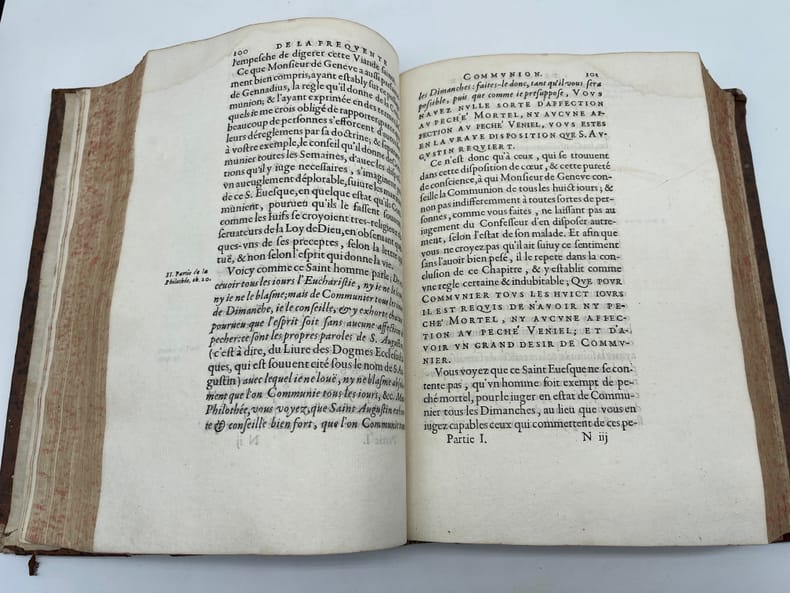 100
DE LA FREQVENTE
l'empesche de digerer cette Viande
Ce que Monsieur de Geneve a aussi
ment bien compris, ayant estably sur
de Gennadius, la règle qu'il donne de la
munion; & l'ayant exprimée en des termes
quels ie me crois obligé de rapporter,
beaucoup de personnes s'efforcent d'
leurs déreglemens par sa doctrine; &
à vostre exemple, le conseil qu'il donne de
munier toutes les Semaines, d'auec les
tions qu'il y iuge necessaires, s'imaginent
vn aueuglement déplorable, suiure les
de ce S. Euesque, en quelque estat qu'ils
munient, pourueu qu'ils le fassent
comme les Iuifs se croyoient tres-religieux
seruateurs de la Loy de Dieu, en obseruant
ques-vns de ses preceptes, selon la
tuë, & non selon l'esprit qui donne la vie.
II. Partie de la
Philothée, ch. 20.
Voicy comme ce Saint homme parle; De
ceuoir tous les iours l'Eucharistie, ny ie ne
ny ie ne le blasme; mais de Communier tous les
de Dimanche, ie le conseille, & y exhorte
pourueu que l'esprit soit sans aucune
pecher: ce sont les propres paroles de S. Augustin
(c'est à dire, du Liure des Dogmes
ques, qui est souuent cité sous le nom de S.
gustin) auec lequel ie ne louë, ny ne blasme
ment que l'on Communie tous les iours, &c.
Philothée, vous voyez, que Saint Augustin
te & conseille bien fort, que l'on Communie
COMMVNION.
101
les Dimanches: faites-le donc, tant qu'il vous sera
possible, puis que comme ie presuppose, VOVS
N'AVEZ NVLLE SORTE D'AFFECTION
AV PECHE' MORTEL, NY AVCVNE AF-
FECTION AV PECHE' VENIEL, VOVS ESTES
EN LA VRAYE DISPOSITION QVE S. AV-
GVSTIN REQVIERT.
Ce n'est donc qu'à ceux, qui se trouuent
dans cette disposition de cœur, & cette pureté
de conscience, à qui Monsieur de Geneve con-
seille la Communion de tous les huict iours; &
non pas indifferemment à toutes sortes de per-
sonnes, comme vous faites, ne laissant pas au
iugement du Confesseur d'en disposer autre-
ment, selon l'estat de son malade. Et afin que
vous ne croyez pas qu'il ait suiuy ce sentiment
sans l'auoir bien pesé, il le repete dans la con-
clusion de ce Chapitre, & y establit comme
vne regle certaine & indubitable; QVE POVR
COMMVNIER TOVS LES HVICT IOVRS
IL EST REQVIS DE N'AVOIR NY PE-
CHE' MORTEL, NY AVCVNE AFFEC-
TION AV PECHE' VENIEL; ET D'A-
VOIR VN GRAND DESIR DE COMMV-
NIER.
Vous voyez que ce Saint Euesque ne se con-
tente pas, qu'vn homme soit exempt de pe-
ché mortel, pour le iuger en estat de Commu-
nier tous les Dimanches, au lieu que vous en
iugez capables ceux qui commettent de ces pe-
Partie I.
N iij